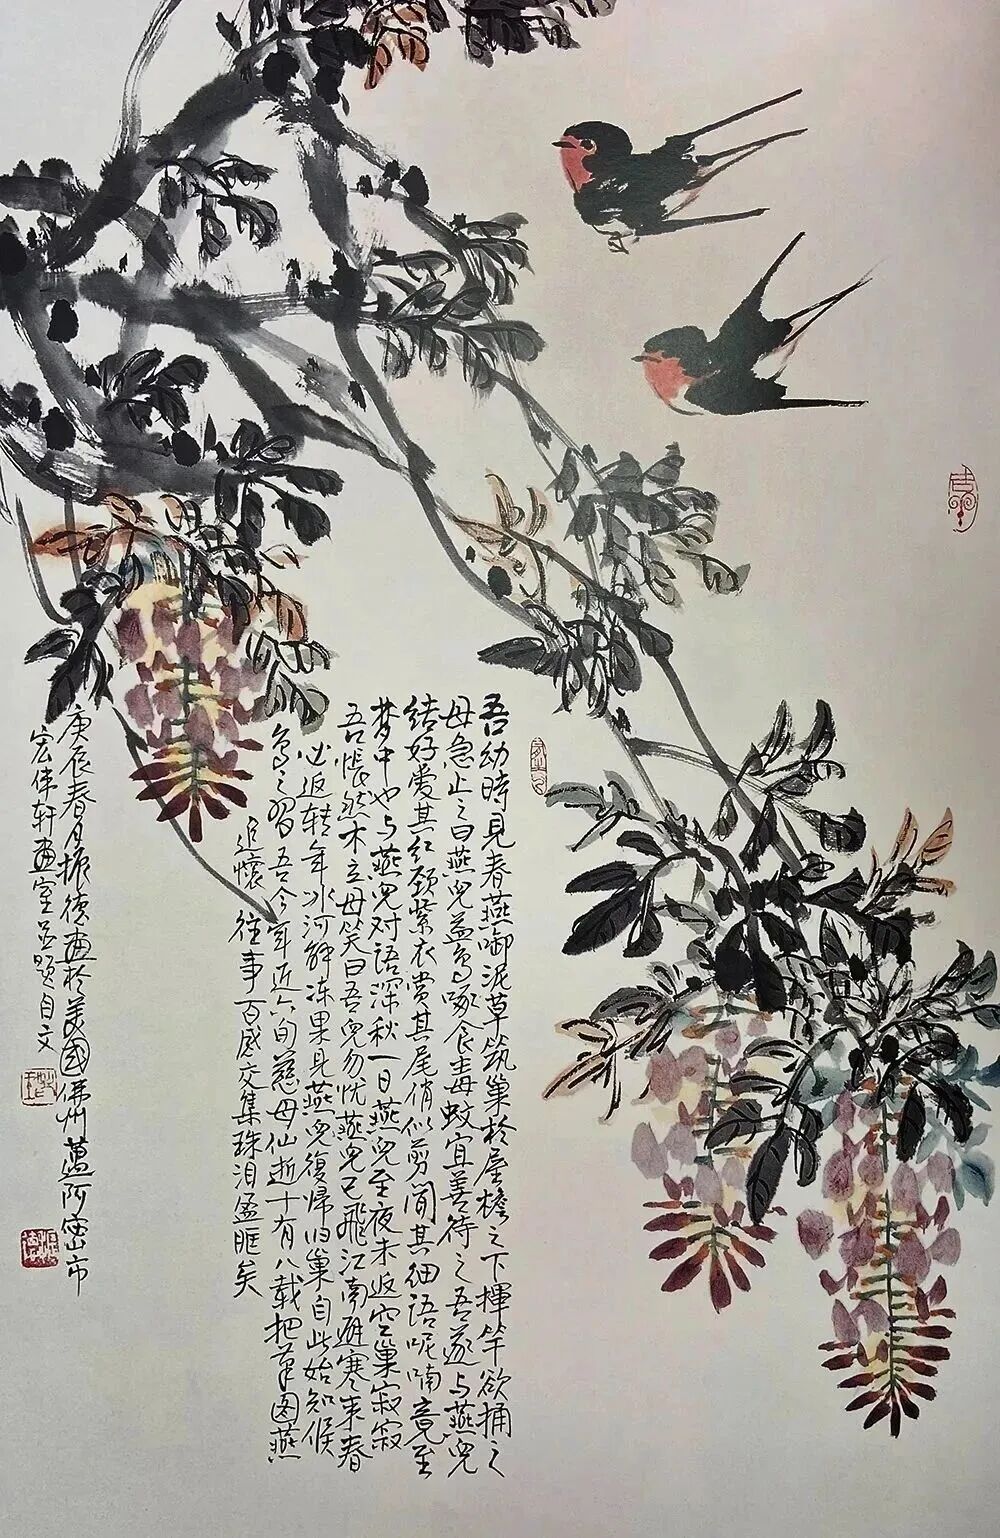 吾幼時見春燕啣泥草筑巢於屋檐之下揮竿欲捅之
母急止之曰燕兒益鳥啄食毒蚊宜善待之吾遂与燕兒
结好爱其红颈紫衣赏其尾俏似剪闻其细语呢喃竟至
梦中也与燕兒对语深秋一日燕兒至夜未返空巢寂寂
吾怅然木立母笑曰吾兒勿忧燕兒已飛江南避寒来春
必返转年冰河解冻果見燕兒復帰旧巢自此始知候
鳥之習吾今年近六旬慈母仙逝十有八载把筆图燕
追懷往事百感交集珠泪盈眶矣
庚辰春月振德画於美國佛州蓝阿密市
宏伟轩画室并题自文